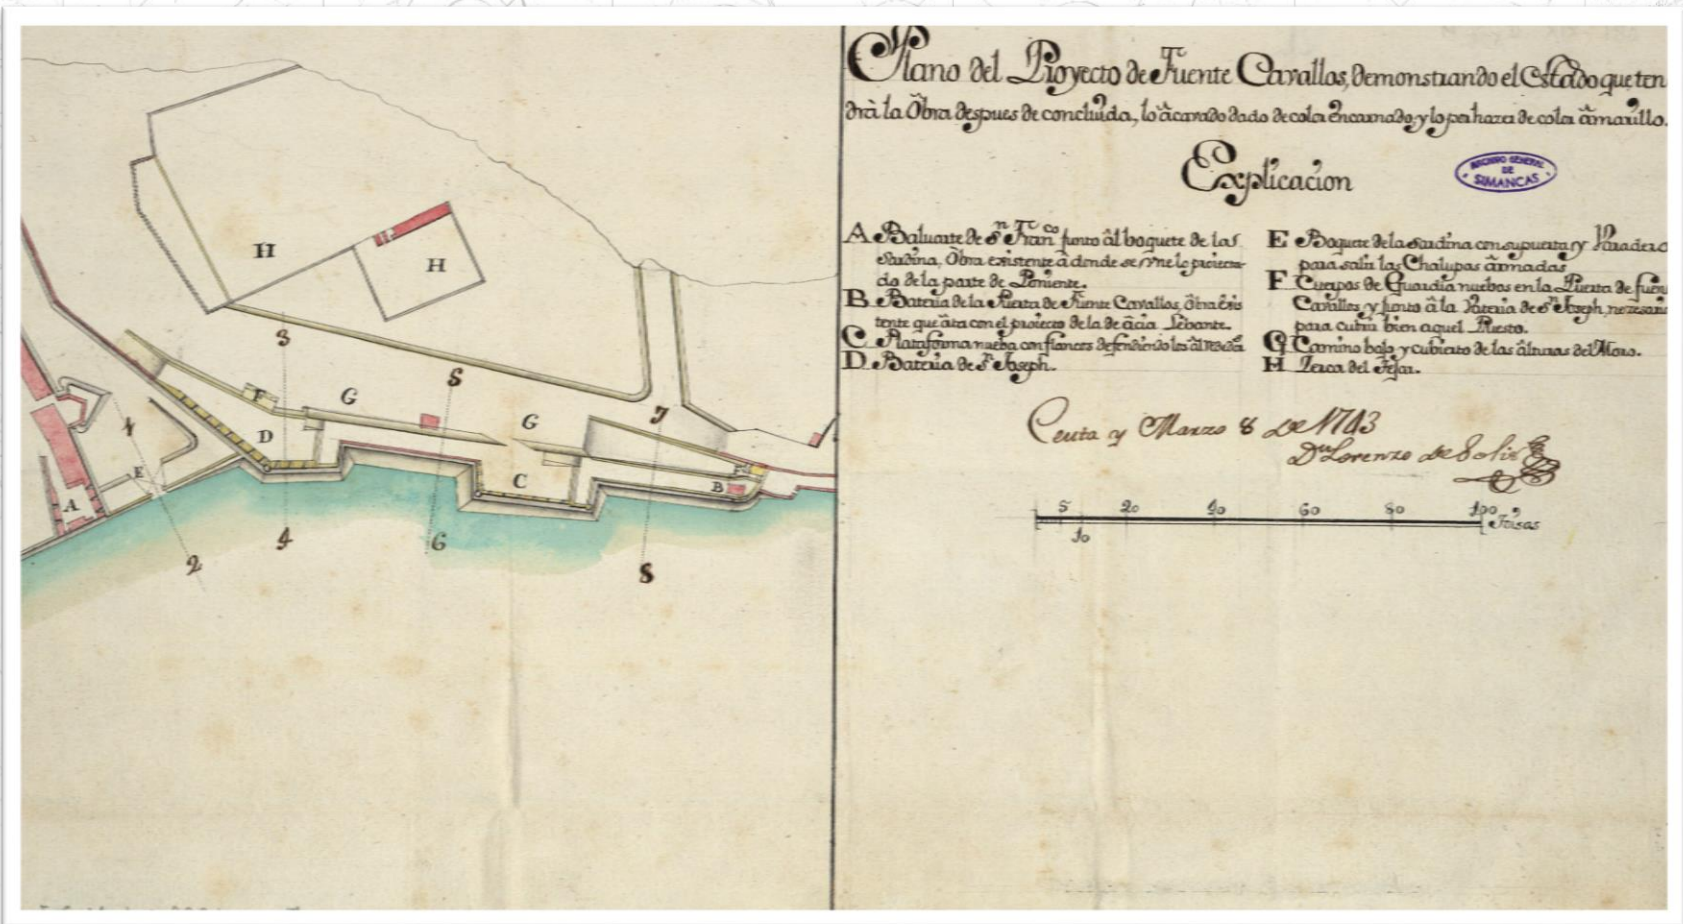 Plano del Proyecto de Fuente Cavallos, demonstrando el Estado que ten
drà la Obra despues de concluida, lo âcavado dado de color encarnado, y lo por hazer de color âmarillo.
Explicacion
ARCHIVO GENERAL
DE
SIMANCAS
A Baluarte de Sn. Franco junto âl boquete de las
Sardina, Obra existente â donde se vne lo proiecta-
do de la parte de Poniente.
B Bateria de la Puerta de Fuente Cavallos, ôbra êxis
tente que âta con el proiecto de la de âcia Lebante.
C Plataforma nueba con flancos defendiendo los
D Bateria de Sn. Joseph.
E Boquete de la Sardina con su puerta y Varadero
para salir las Chalupas ârmadas
F Cuerpos de Guardia nuebos en la Puerta de fuen
Cavallos y junto â la Vateria de Sn. Joseph, nezesari
para cubrir bien aquel Puesto.
G Camino bajo y cubierto de las âlturas del Moro.
H Zerca del Tejar.
Ceuta y Marzo 8 de 1743
Dn Lorenzo de Solis
5 20 40 60 80 100 Toisas
10
H
H
3
S
F
G
G
7
1
D
E
C
F
B
A
4
6
2
8